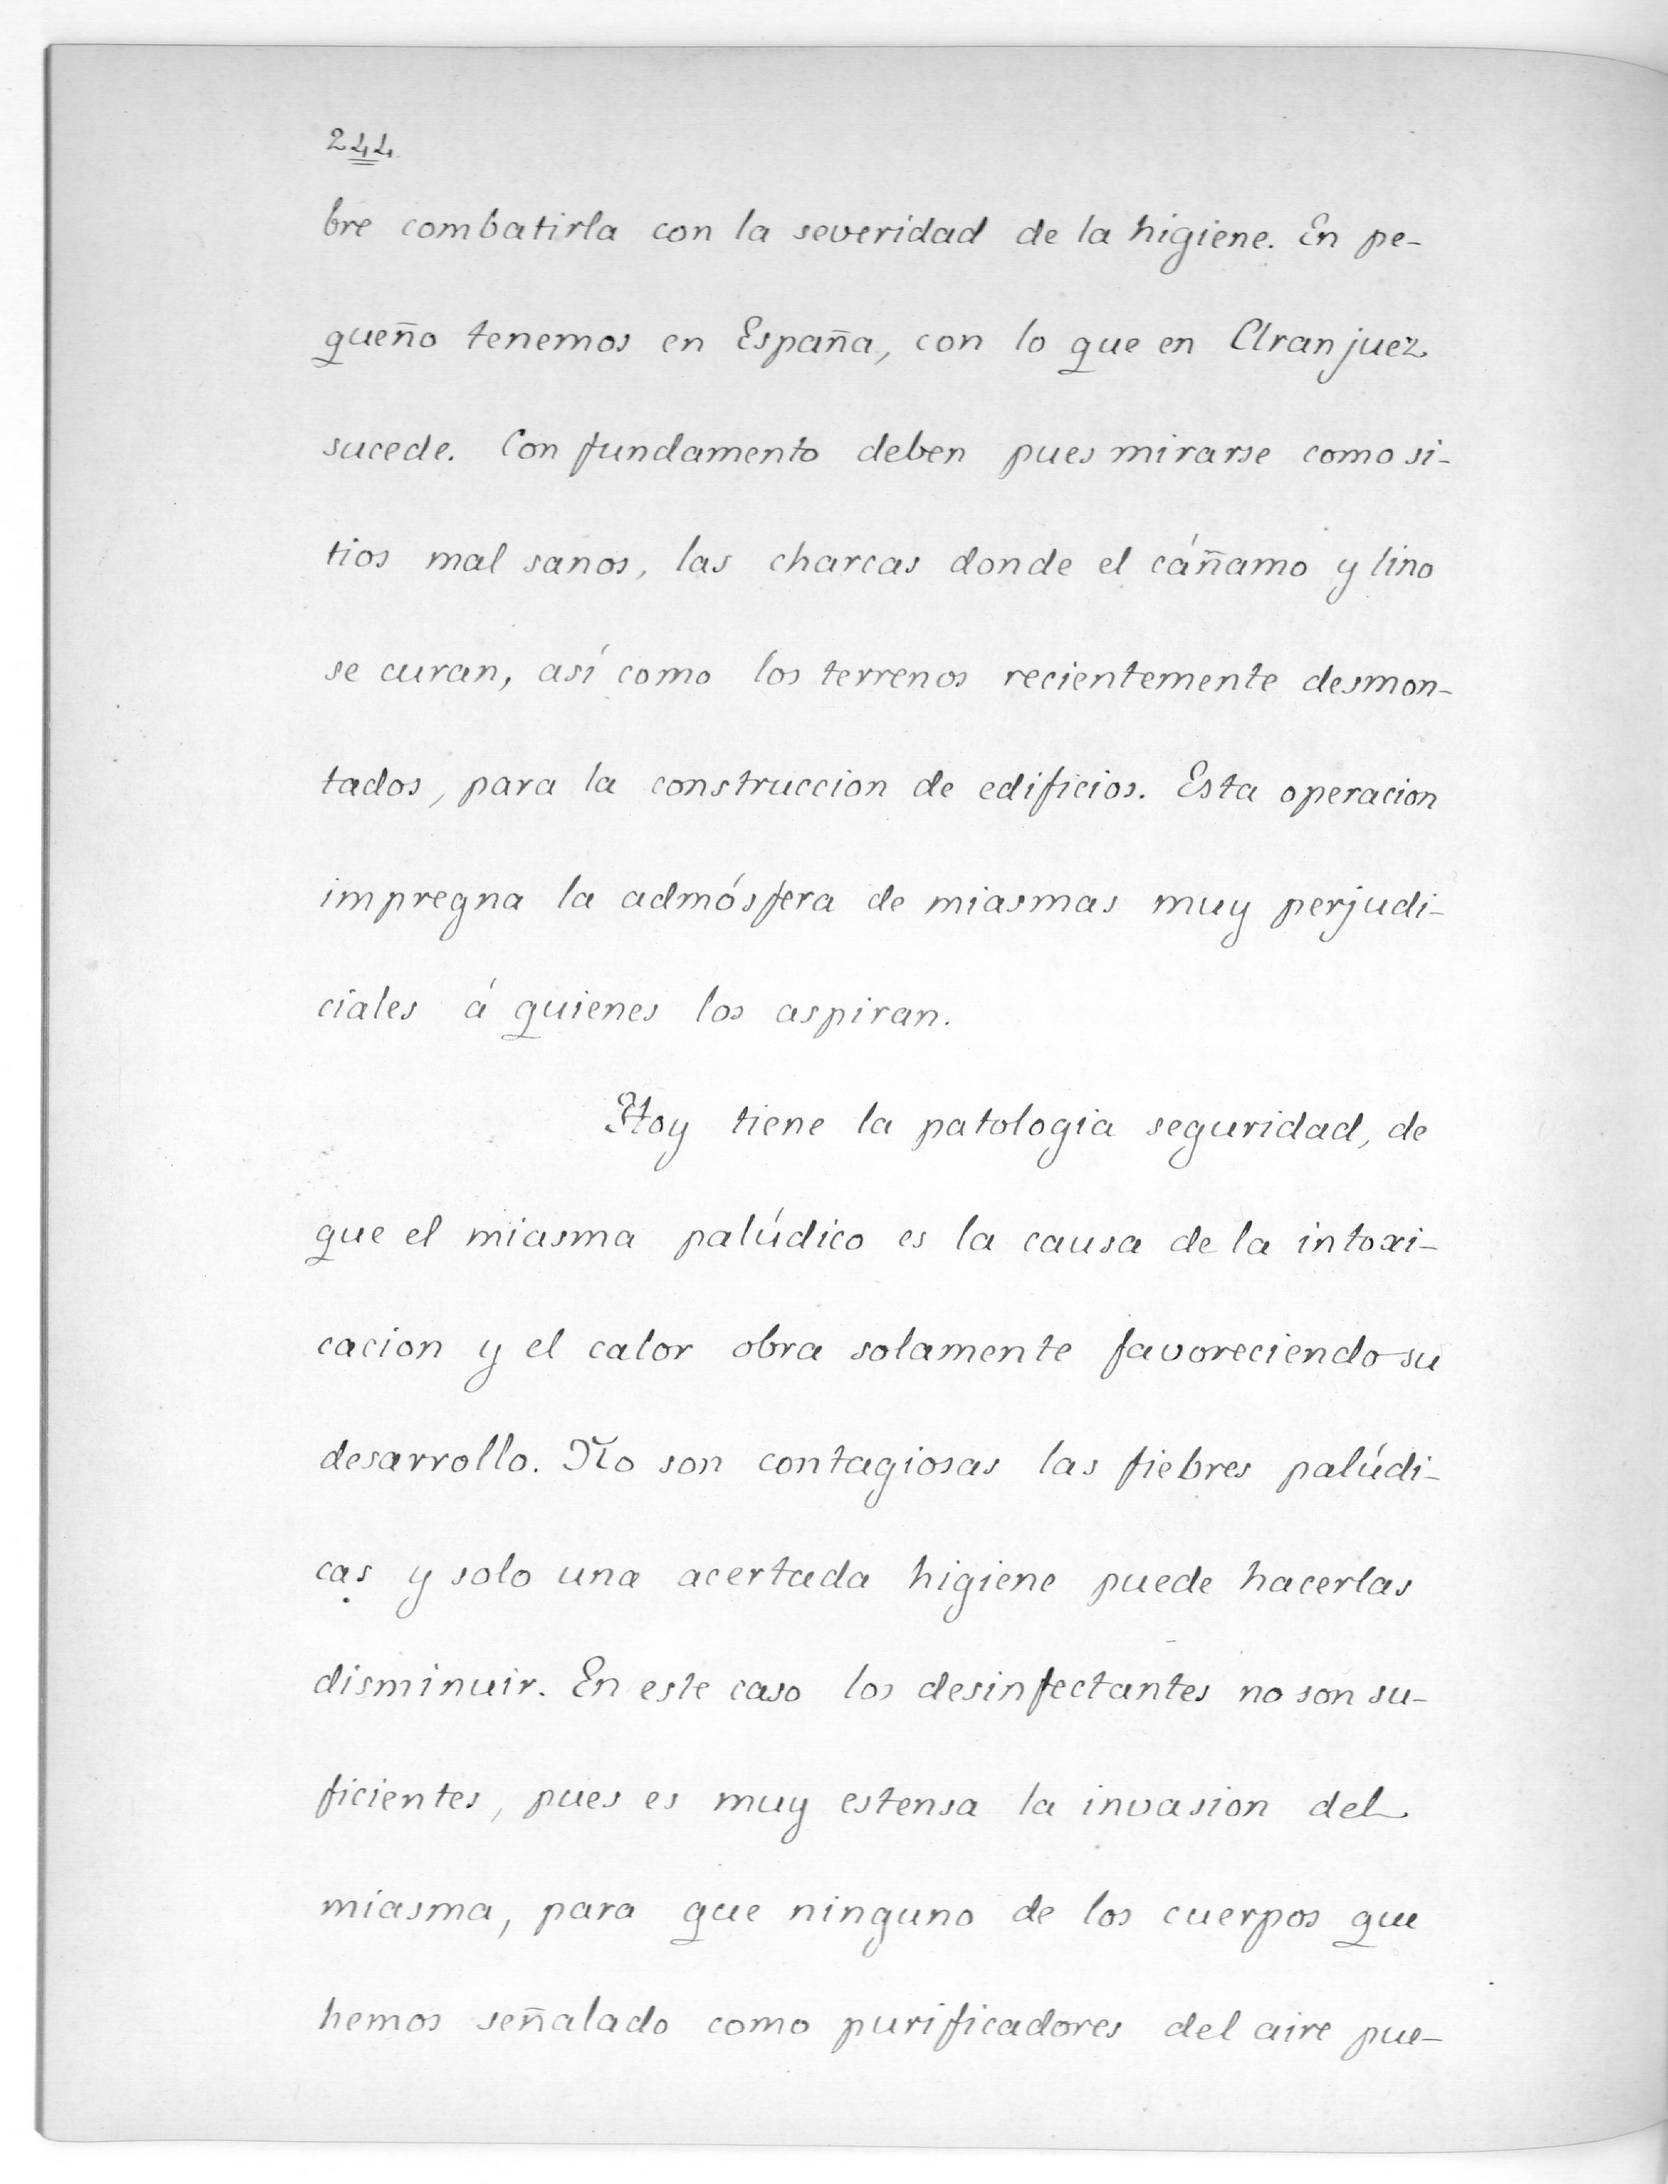 244.
bre combatirla con la severidad de la higiene. En pe-
queño tenemos en España, con lo que en Aranjuez
sucede. Con fundamento deben pues mirarse como si-
tios mal sanos, las charcas donde el cáñamo y lino
se curan, así como los terrenos recientemente desmon-
tados, para la construccion de edificios. Esta operacion
impregna la admósfera de miasmas muy perjudi-
ciales á quienes los aspiran.
Hoy tiene la patologia seguridad, de
que el miasma palúdico es la causa de la intoxi-
cacion y el calor obra solamente favoreciendo su
desarrollo. No son contagiosas las fiebres palúdi-
cas y solo una acertada higiene puede hacerlas
disminuir. En este caso los desinfectantes no son su-
ficientes, pues es muy estensa la invasion del
miasma, para que ninguno de los cuerpos que
hemos señalado como purificadores del aire pue-